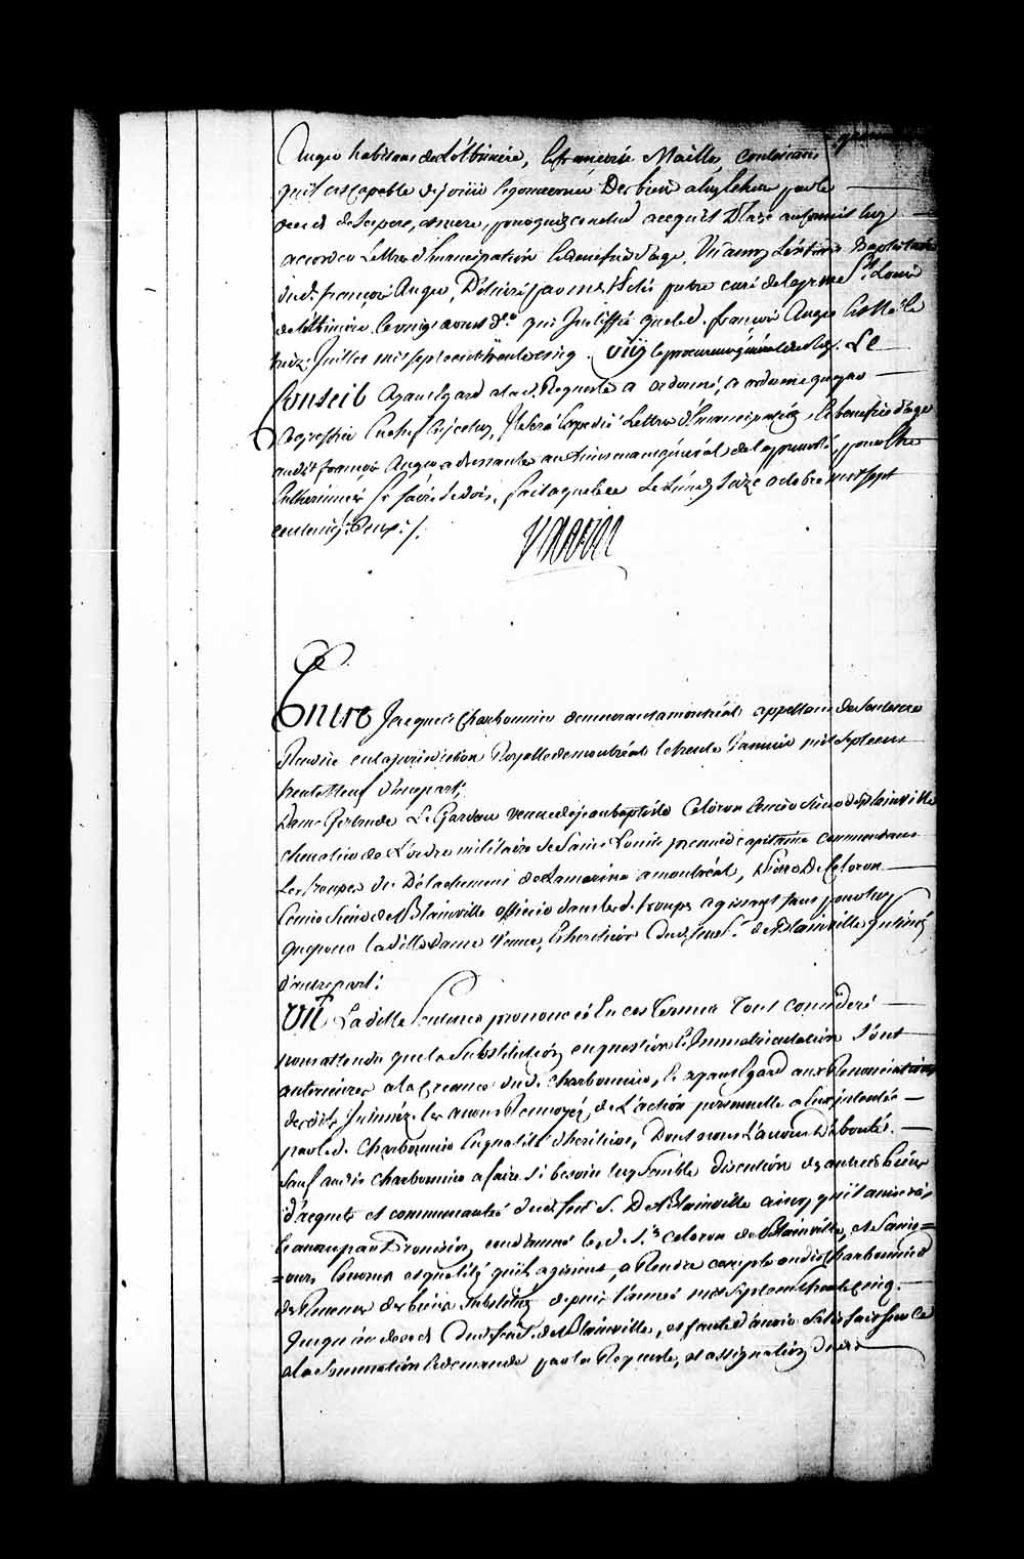 Auger habitans de Lotbiniere, & françoise Maillot, contenant
quil est capable de jouir & gouverner Des biens a luy echus par le
deces de ses pere, et mere, pourquoy conclud acequil Plaise au Conseil luy
accorder Lettres d'Emancipation & benefice d'age. Vû aussy L'extrait baptistaire
dud. françois Auger, Délivré par prestre curé de la parroisse St. Louis
de lotbiniere le aoust d.er qui Justiffie que led. françois Auger Est Né le
treize Juillet mil sept cent trente cinq. Ouy le procureur général du Roy. Le
Conseil Ayant Egard a lad. Requeste a ordonné, & ordonne que par
Greffier En chef Expedié Lettres d'Emancipation & benefice d'age
aud.t françois Auger adressante au Lieutenant général de la prevosté, pour Etre
Entherinnées Se faire Se doit. fait a quebec Le Lundy Seize octobre mil sept
cent cinq.te Deux./.
Varin
Entre Jacques Charbonnier demeurant a montréal appellant de Sentence
Rendue en la jurisdiction Royalle de montréal le trente Janvier mil sept cent
trente Neuf d'une part;
Dame Gertrude Le Gardeur veuve de jean baptiste Celoron Ecuier Sieur de Blainville
chevalier de L'ordre militaire de Saint Louis premier capitaine commandant
Les troupes du Détachement de La marine a montréal, Sieur De Celoron
Ecuier Sieur de Blainville officier dans led. troupes agissant tant pour luy
que pour Ladille dame Veuve, & heritiers Dud. feu S.r de Blainville Intimés
d'autre part:
Vû La ditte Sentence prononcée En ces termes Tout considéré
nous attendu que la Substitution en question & Immatriculation Sont
anterieures a la Creance dud. charbonnier, & ayant Egard aux Renonciations
desdits Intimés les avons Renvoyés de L'action personnelle a Eux intentée
par led. Charbonnier En qualité d'heritiers, Dont nous L'avons Débouté.
Sauf audit charbonnier a faire Si besoin luy Semble discution des autres biens
d'acquets et communauté dud. feu S. De Blainville ainsy quil avisera
beaucoup par Provision, condamné led. S.r celoron de Blainville, et Sannis
ours Ecuiers es qualités quils agissent, a Rendre compte audit charbonnier
des Revenus des biens Substitués depuis l'année mil sept cent trente cinq.
Jusqu'au deces Dud. feu S. de Blainville, et faute d'avoir Satisfait sur ce
a la Sommation & demande par la Requeste, et assignation